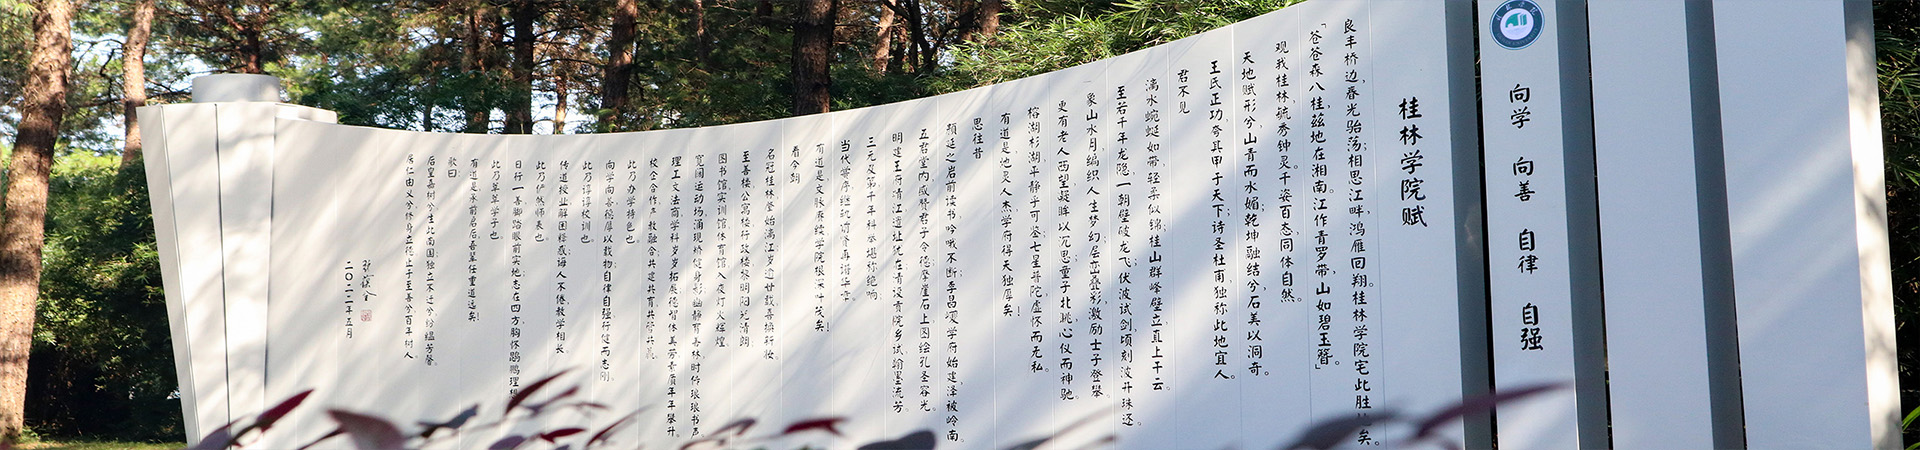 向学 向善 自律 自强
桂林学院赋
良丰桥边，春光骀荡；相思江畔，鸿雁回翔。桂林学院宅此胜 矣。
「苍苍森八桂，兹地在湘南。江作青罗带，山如碧玉簪。」
观我桂林，毓秀钟灵。千姿百态，同体自然。
天地赋形兮，山青而水媚；乾坤融结兮，石美以洞奇。
王氏正功，夸其甲于天下；诗圣杜甫，独称此地宜人。
君不见
漓水蜿蜒如带，轻柔似锦；桂山群峰壁立，直上干云。
至若千年龙隐，一朝壁破龙飞；伏波试剑，顷刻波升珠还。
象山水月，编织人生梦幻；层峦叠彩，激励士子登攀。
更有老人西望，凝眸以沉思；童子北眺，心仪而神驰。
榕湖杉湖，平静乎可鉴；七星普陀，虚怀而无私。
有道是：地灵人杰，学府得天独厚矣！
思往昔
颜延之岩前读书，吟哦不断；李昌巙学府始建，泽被岭南。
五君堂内，咸赞君子令德；摩崖石上，图绘孔圣容光。
明建王府，清江遗址犹在；清设贡院，乡试翰墨流芳。
三元及第，千年科举堪称绝响；
当代黉序，继轨前贤再谱华章。
有道是：文脉赓续，学院根深叶茂矣！
看今朝
名冠桂林，肇始漓江，岁逾廿载，喜换新妆。
至善楼、公寓楼、行政楼，黎明阳光清朗；
图书馆、实训馆、体育馆，入夜灯火辉煌。
宽阔运动场，涌现矫健身影；幽静育善林，时传琅琅书声。
理工文法商，学科岁岁拓展；德智体美劳，素质年年攀升。
校企合作，产教融合，共建共育共管共赢。
此乃办学特色也。
向学向善，德厚以载物；自律自强，行健而志刚。
此乃谆谆校训也。
传道授业，解困释惑，诲人不倦，教学相长。
此乃俨然师表也。
日行一善，脚踏眼前实地；志在四方，胸怀鹍鹏理
此乃莘莘学子也。
有道是：承前启后，吾辈任重道远矣！
歌曰：
后皇嘉树兮生此南国，独立不迁兮纷缊芳馨。
居仁由义兮修身立德，止于至善兮百年树人。
二〇二二年五月